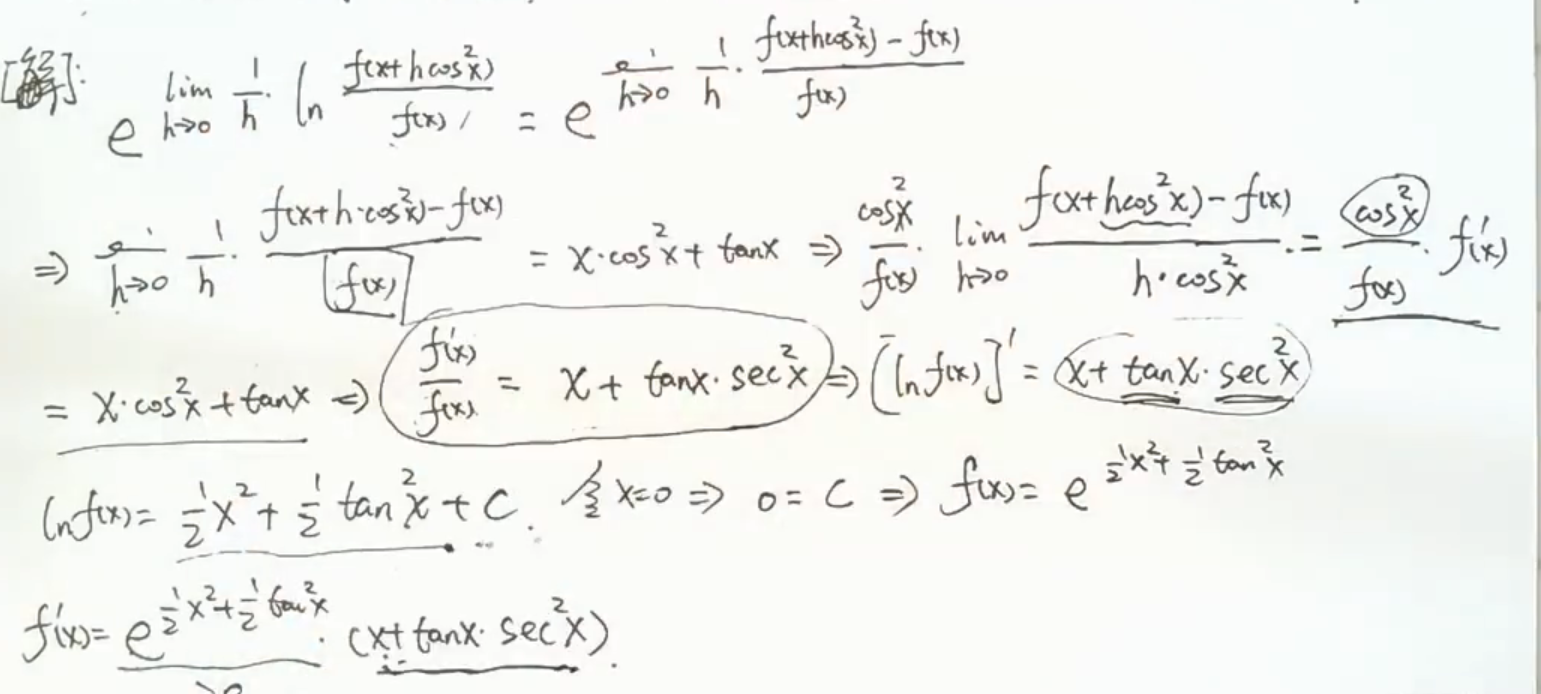 [解]: e^{lim_{h→0} 1/h · ln f(x+hcos²x)/f(x)} = e^{lim_{h→0} 1/h · (f(x+hcos²x)-f(x))/f(x)}
⇒ lim_{h→0} 1/h · (f(x+h·cos²x)-f(x))/f(x) = x·cos²x + tanx ⇒ cos²x/f(x) · lim_{h→0} (f(x+hcos²x)-f(x))/(h·cos²x) = cos²x/f(x) · f'(x)
= x·cos²x + tanx ⇒ f'(x)/f(x) = x + tanx·sec²x ⇒ [ln f(x)]' = x + tanx·sec²x
ln f(x) = 1/2 x² + 1/2 tan²x + C. 令 x=0 ⇒ 0 = C ⇒ f(x) = e^{1/2 x² + 1/2 tan²x}
f'(x) = e^{1/2 x² + 1/2 tan²x} · (x + tanx·sec²x).